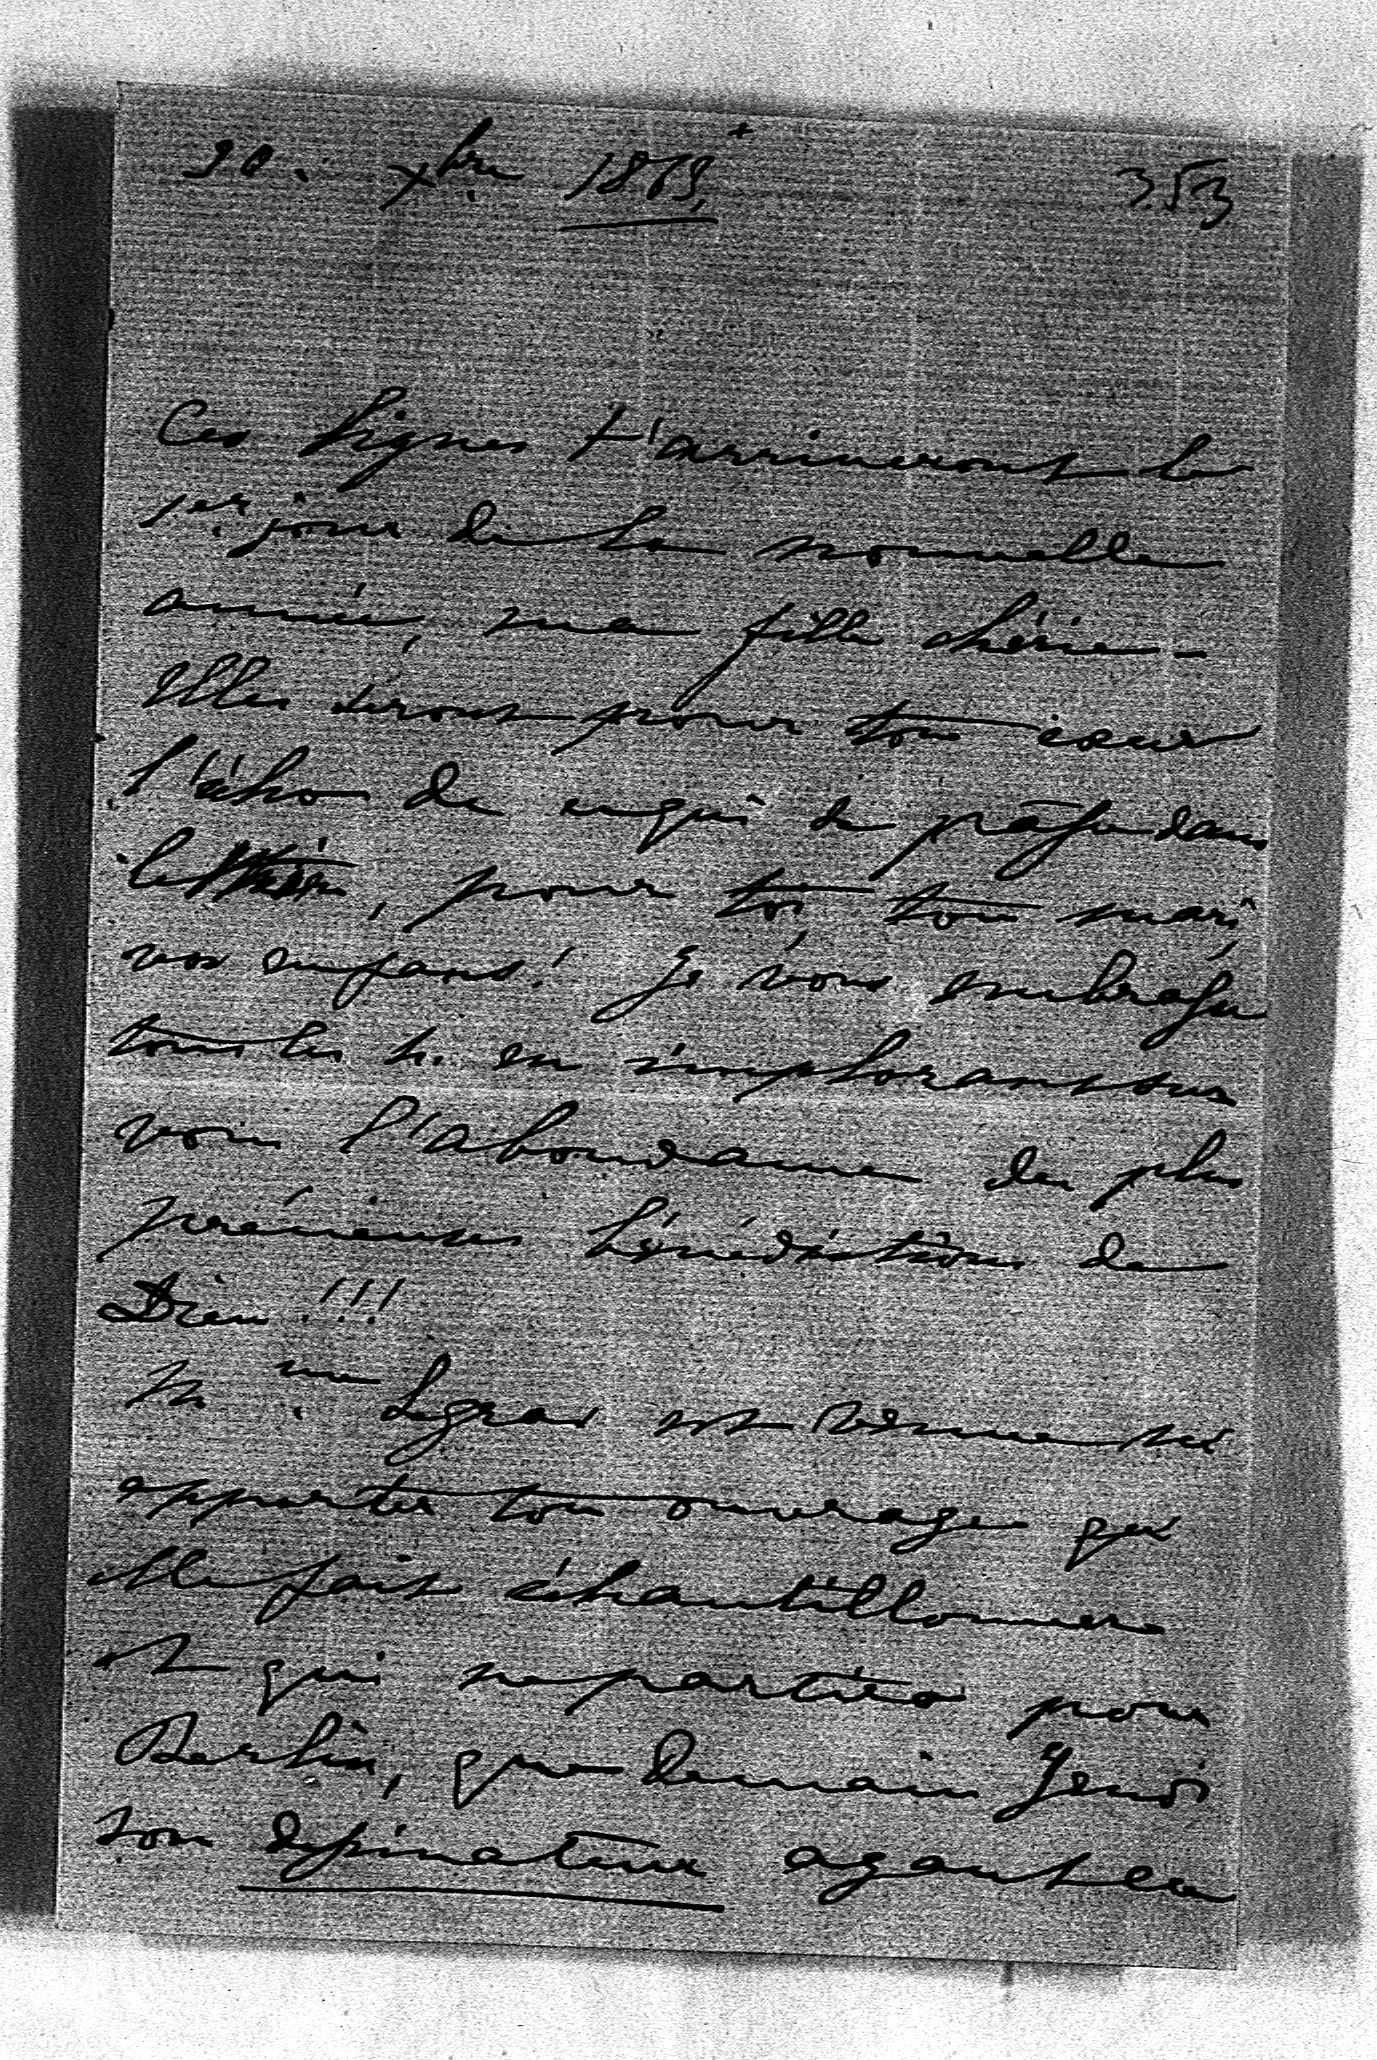 30. Xbre 1869
353
Ces lignes t'arriveront le
1er jour de la nouvelle
année, ma fille chérie -
Elles seront pour ton cœur
l'écho de ce qui se passe dans
le mien, pour toi ton mari
vos enfans! Je vous embrasse
tous les 4. en implorant sur
vous l'abondance des plus
précieuses bénédictions de
Dieu!!!
Mme Legras est venue ici
apporter ton ouvrage qu'
elle fait échantillonner
et qui ne partira pour
Berlin, que demain Jeudi
son dessinateur ayant eu